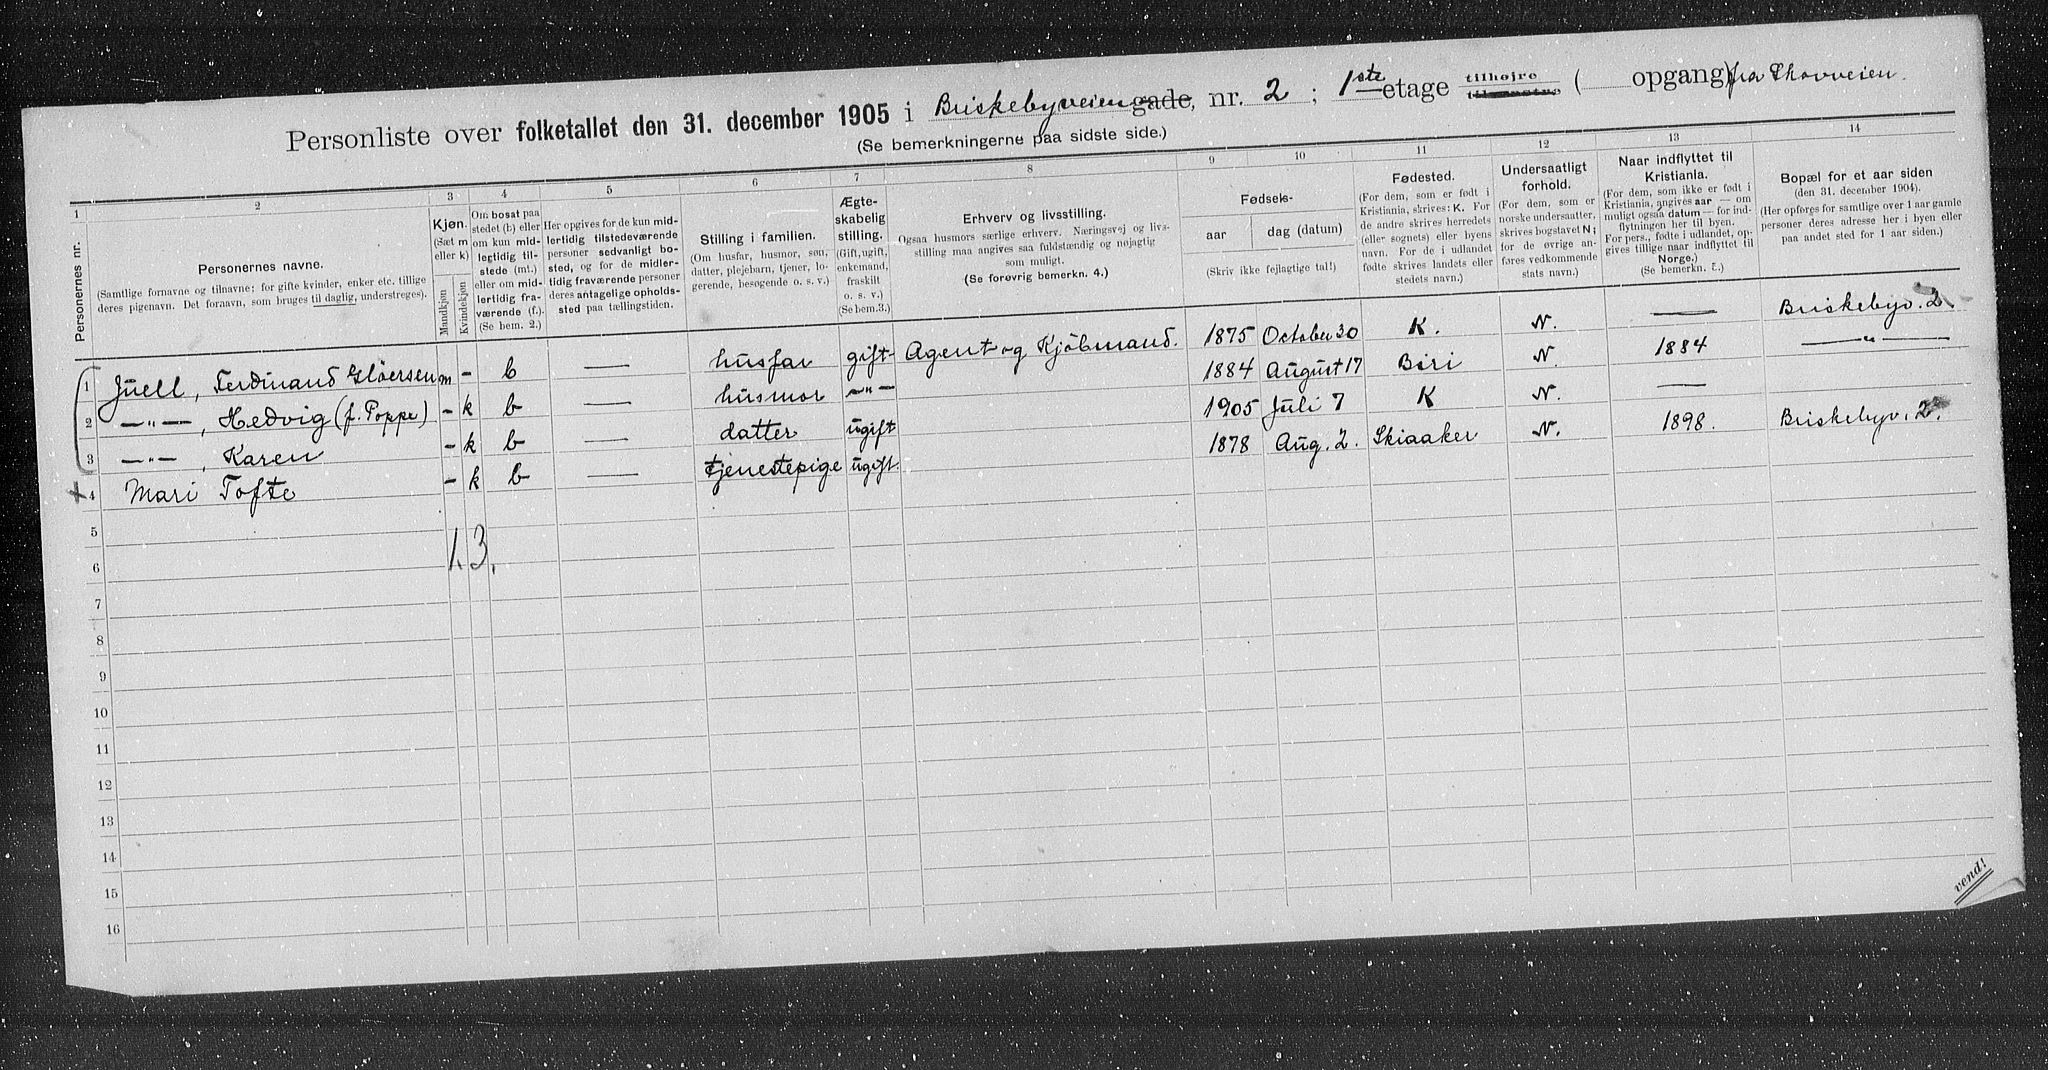 Personliste over folketallet den 31. december 1905 i Briskebyveien gade, nr. 2 ; 1ste etage tilhøjre tilvenstre ( opgang) fra Thovveien.
(Se bemerkningerne paa sidste side.)
1 2 3 4 5 6 7 8 9 10 11 12 13 14
Personernes nr.
Personernes navne.
(Samtlige fornavne og tilnavne; for gifte kvinder, enker etc. tillige
deres pigenavn. Det fornavn, som bruges til daglig, understreges).
Kjøn.
(Sæt m
eller k)
Mandkjøn
Kvindekjøn
Om bosat paa
stedet (b) eller
om kun mid-
lertidig til-
stede (mt.)
eller om mid-
lertidig fra-
værende (f.).
(Se bem. 2.)
Her opgives for de kun mid-
lertidig tilstedeværende
personer sedvanlig bo-
sted, og for de midler-
tidig fraværende personer
deres antagelige opholds-
sted paa tællingstiden.
Stilling i familien.
(Om husfar, husmor, søn,
datter, plejebarn, tjener, lo-
gerende, besøgende o. s. v.)
Ægte-
skabelig
stilling.
(Gift, ugift,
enkemand,
fraskilt
o. s. v.)
(Se bem.3.)
Erhverv og livsstilling.
Ogsaa husmors særlige erhverv. Næringsvej og livs-
stilling maa angives saa fuldstændig og nøjagtig
som muligt.
(Se forøvrig bemerkn. 4.)
Fødsels-
aar dag (datum)
(Skriv ikke fejlagtige tal!)
Fødested.
(For dem, som er født i
Kristiania, skrives: K. For
de andre skrives herredets
(eller sognets) eller byens
navn. For de i udlandet
fødte skrives landets eller
stedets navn.)
Undersaatligt
forhold.
(For dem, som er
norske undersaatter,
skrives bogstavet N;
for de øvrige an-
føres vedkommende
stats navn.)
Naar indflyttet til
Kristiania.
(For dem, som ikke er født i
Kristiania, angives aar — om
muligt ogsaa datum — for ind-
flytningen her til byen.
For pers., fødte i udlandet, op-
gives tillige naar indflyttet til
Norge.)
Bopæl for et aar siden
(den 31. december 1904).
(Her opføres for samtlige over 1 aar gamle
personer deres adresse her i byen eller
paa andet sted for 1 aar siden.)
1 Juell, Ferdinand Gløersen m - b — husfar gift Agent og Kjøbmand. 1875 October 30 K. N. — Briskebyv. 2
2 —"—, Hedvig (f. Poppe) - k b — husmor —"— 1884 August 17 Biri N. 1884 —"—
3 —"—, Karen - k b — datter ugift 1905 Juli 7 K N. —
4 Mari Tofte - k b — tjenestepige ugift. 1878 Aug. 2. Skiaaker N. 1898. Briskebyv. 2
5
6 1. 3.
7
8
9
10
11
12
13
14
15
16
vend!